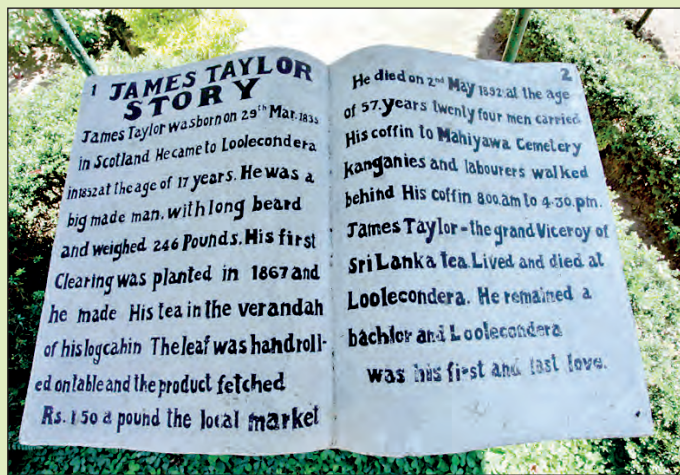 1 JAMES TAYLOR
STORY
James Taylor was born on 29th Mar. 1835
in Scotland He came to Loolecondera
in 1852 at the age of 17 years. He was a
big made man. with long beard
and weighed 246 Pounds. His first
Clearing was planted in 1867 and
he made His tea in the verandah
of his logcahin The leaf was handroll-
ed on table and the product fetched
Rs. 1.50 a pound the local market
2
He died on 2nd May 1892 at the age
of 57. years twenty four men carried
His coffin to Mahiyawa Cemelery
kanganies and labourers walked
behind His coffin 8.00.am to 4-30.pm.
James Taylor-the grand Viceroy of
Sri Lanka tea. Lived and died at
Loolecondera. He remained a
bachlor and Loolecondera
was his first and last love.